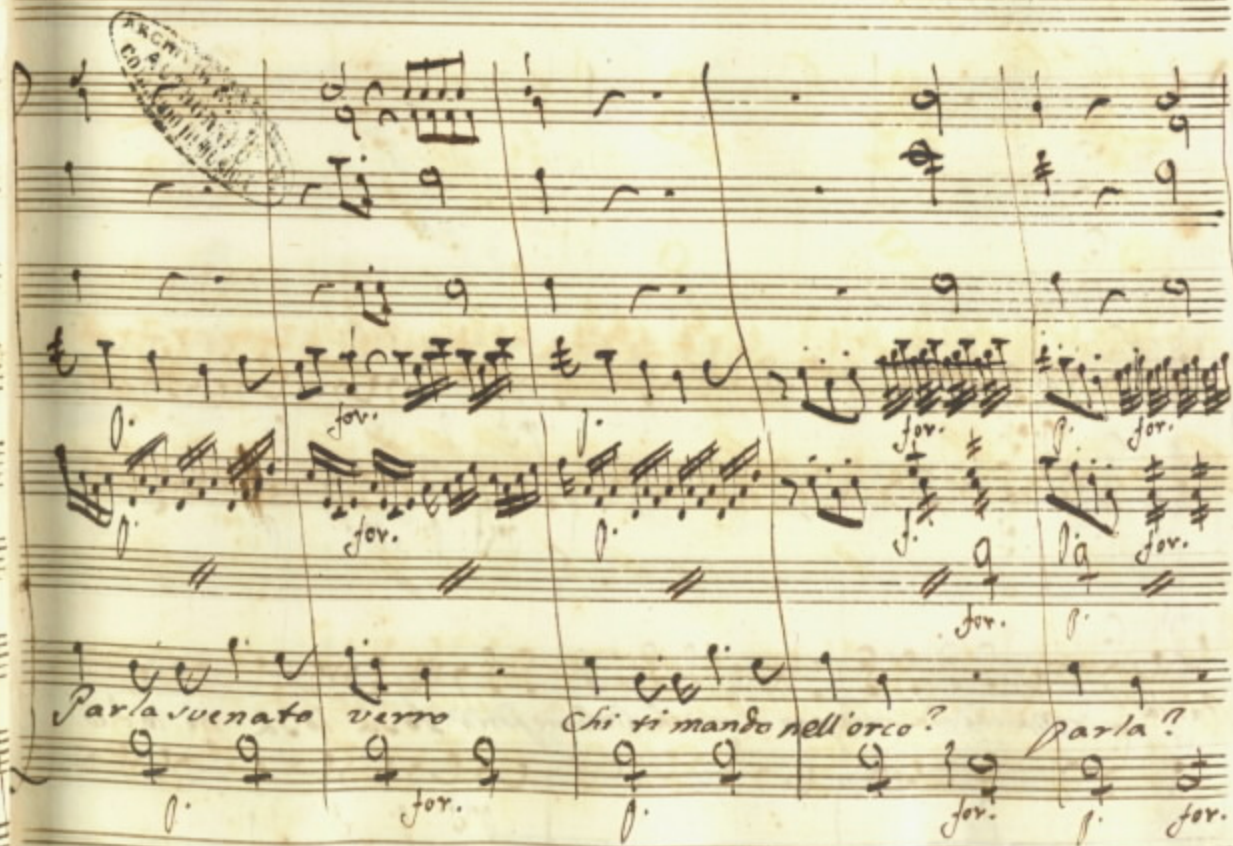 for.
p.
p.
for.
p.
for.
p.
for.
p.
f.
for.
for.
p.
Parla svenato verro Chi ti mandò nell'orco? Parla?
p.
for.
p.
for.
p.
for.